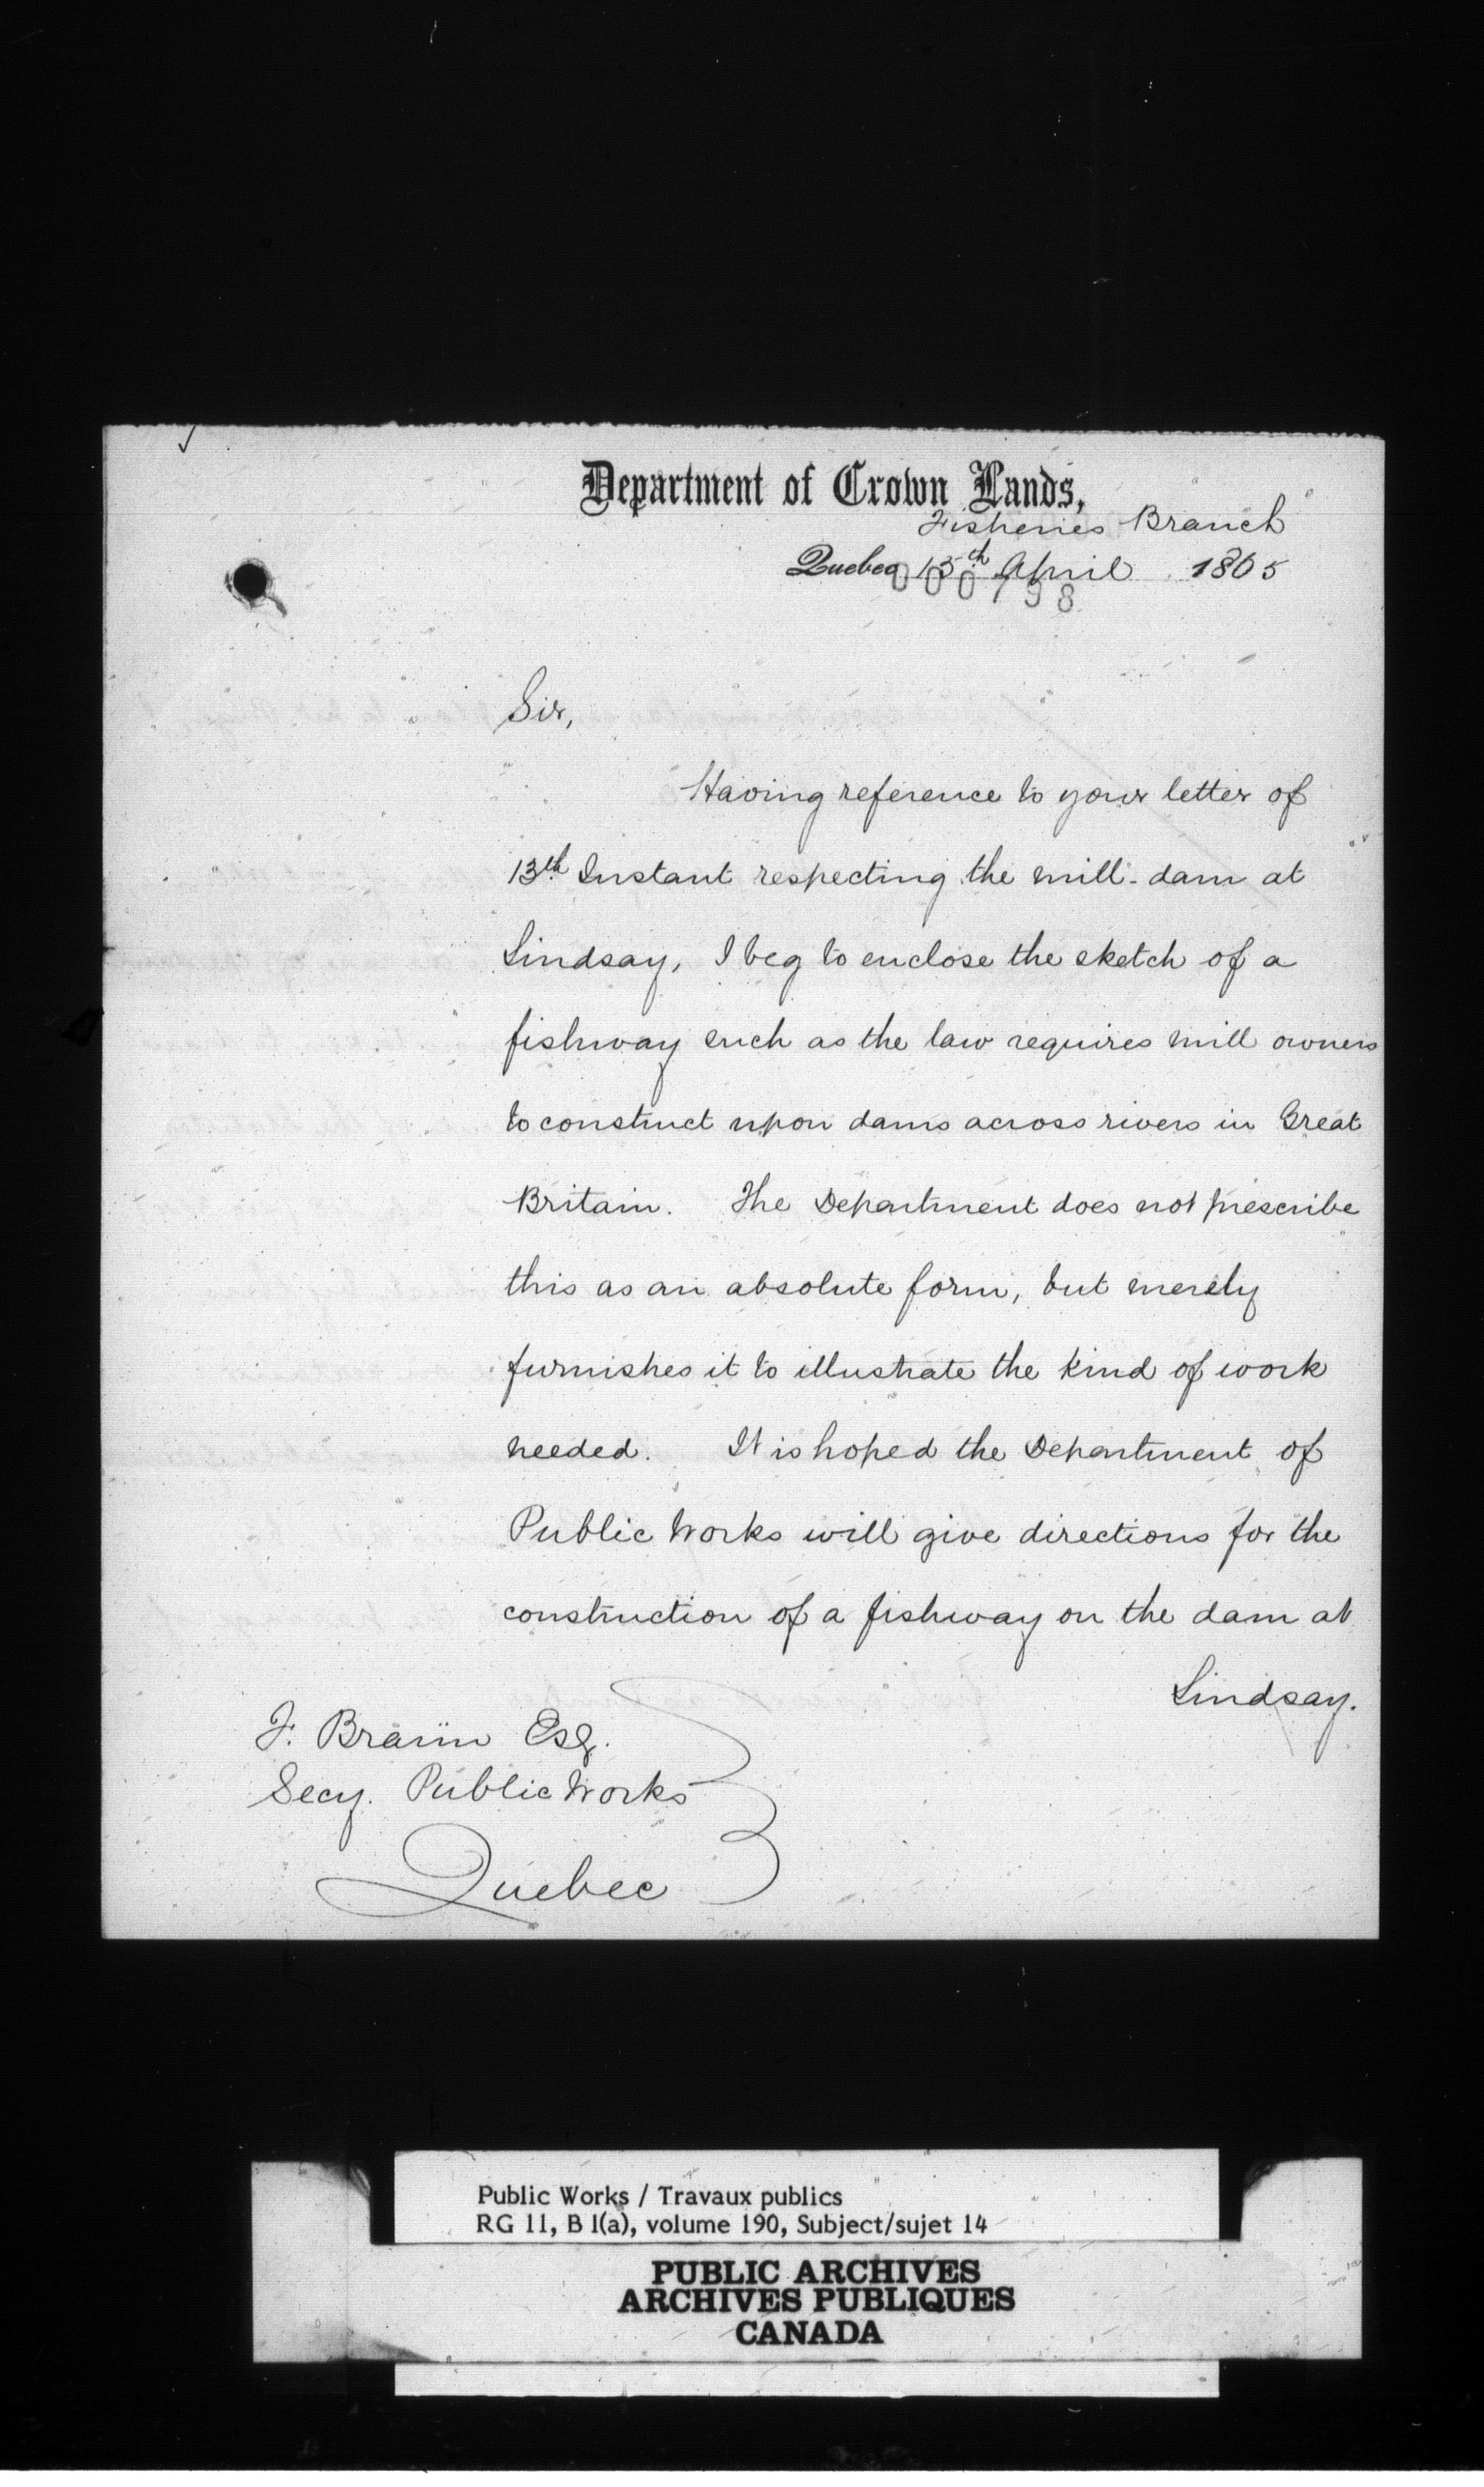 Department of Crown Lands,
Fisheries Branch
Quebec 15th April 1865
000798
Sir,
Having reference to your letter of
13th Instant respecting the mill-dam at
Lindsay, I beg to enclose the sketch of a
fishway such as the law requires mill owners
to construct upon dams across rivers in Great
Britain. The Department does not prescribe
this as an absolute form, but merely
furnishes it to illustrate the kind of work
needed. It is hoped the Department of
Public Works will give directions for the
construction of a fishway on the dam at
Lindsay.
F. Braün Esq.
Secy. Public Works
Quebec
Public Works / Travaux publics
RG 11, B 1(a), volume 190, Subject/sujet 14
PUBLIC ARCHIVES
ARCHIVES PUBLIQUES
CANADA